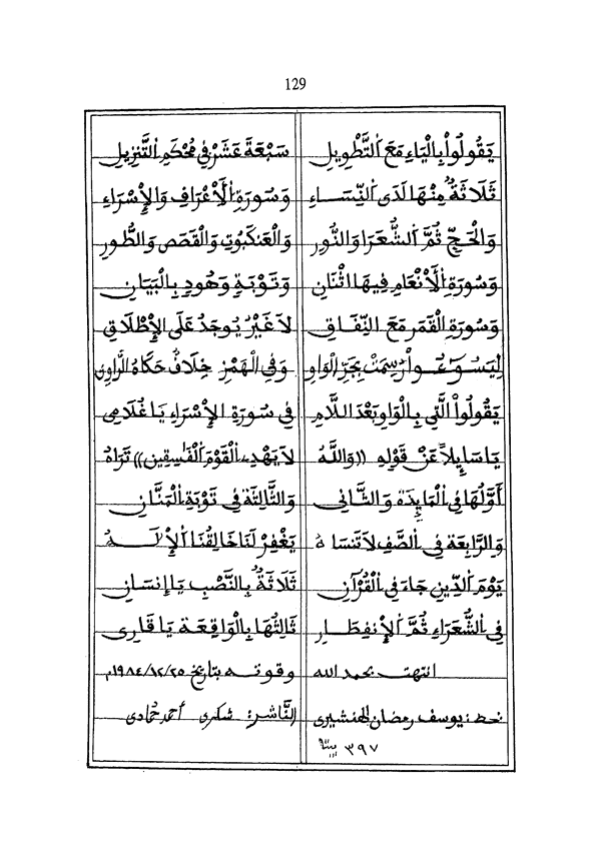 129
يَقُولُواْ بِالْيَاءِ مَعَ التَّطْوِيلِ سَبْعَةَ عَشَرْ فِي مُحْكَمِ التَّنْزِيلِ
ثَلَاثَةٌ مِنْهَا لَدَى النِّسَاءِ وَسُورَةِ الْأَعْرَافِ وَالْإِسْرَاءِ
وَالْحَجِّ ثُمَّ الشُّعَرَا وَالنُّورِ وَالْعَنكَبُوتِ وَالْقَصَصِ وَالطُّورِ
وَسُورَةِ الْأَنْعَامِ فِيهَا اثْنَانِ وَتَوْبَةٍ وَهُودٍ بِالْبَيَانِ
وَسُورَةِ الْقَمَرِ مَعَ النِّفَاقِ لَا غَيْرُ يُوجَدُ عَلَى الْإِطْلَاقِ
لِيَسُـࣳـُٔواْ رُسِمَتْ بِجَرِّ الْوَاوِ وَفِي الْهَمْزِ خِلَافٌ حَكَاهُ الرَّاوِي
يَقُولُواْ الَّتِي بِالْوَاوِ بَعْدَ اللَّامِ فِي سُورَةِ الْإِسْرَاءِ يَا غُلَامِي
يَا سَايِلاً عَنْ قَوْلِهِ ((وَاللَّهُ لَا يَهْدِى الْقَوْمَ الْفَاسِقِينَ)) تَرَاهُ
أَوَّلُهَا فِي الْمَايِدَةِ وَالثَّانِي وَالثَّالِثَةُ فِي تَوْبَةِ الْمَنَّانِ
وَالرَّابِعَةُ فِي الصَّفِّ لَا تَنسَاهُ يَغْفِرْ لَنَا خَالِقُنَا الْإِلَـهُ
يَوْمَ الدِّينِ جَاءَ فِي الْقُرْآنِ ثَلَاثَةٌ بِالنَّصْبِ يَا إِنسَانِ
فِي الشُّعَرَاءِ ثُمَّ الْإِنفِطَارِ ثَالِثُهَا بِالْوَاقِعَةِ يَا قَارِي
انتهت بحمد الله وقوته بتاريخ ١٩٨٤/١٢/٢٥م
خط: يوسف رمضان الهنشيري النَّاشر: شكري أحمد حمادي
٣٩٧ بيتا